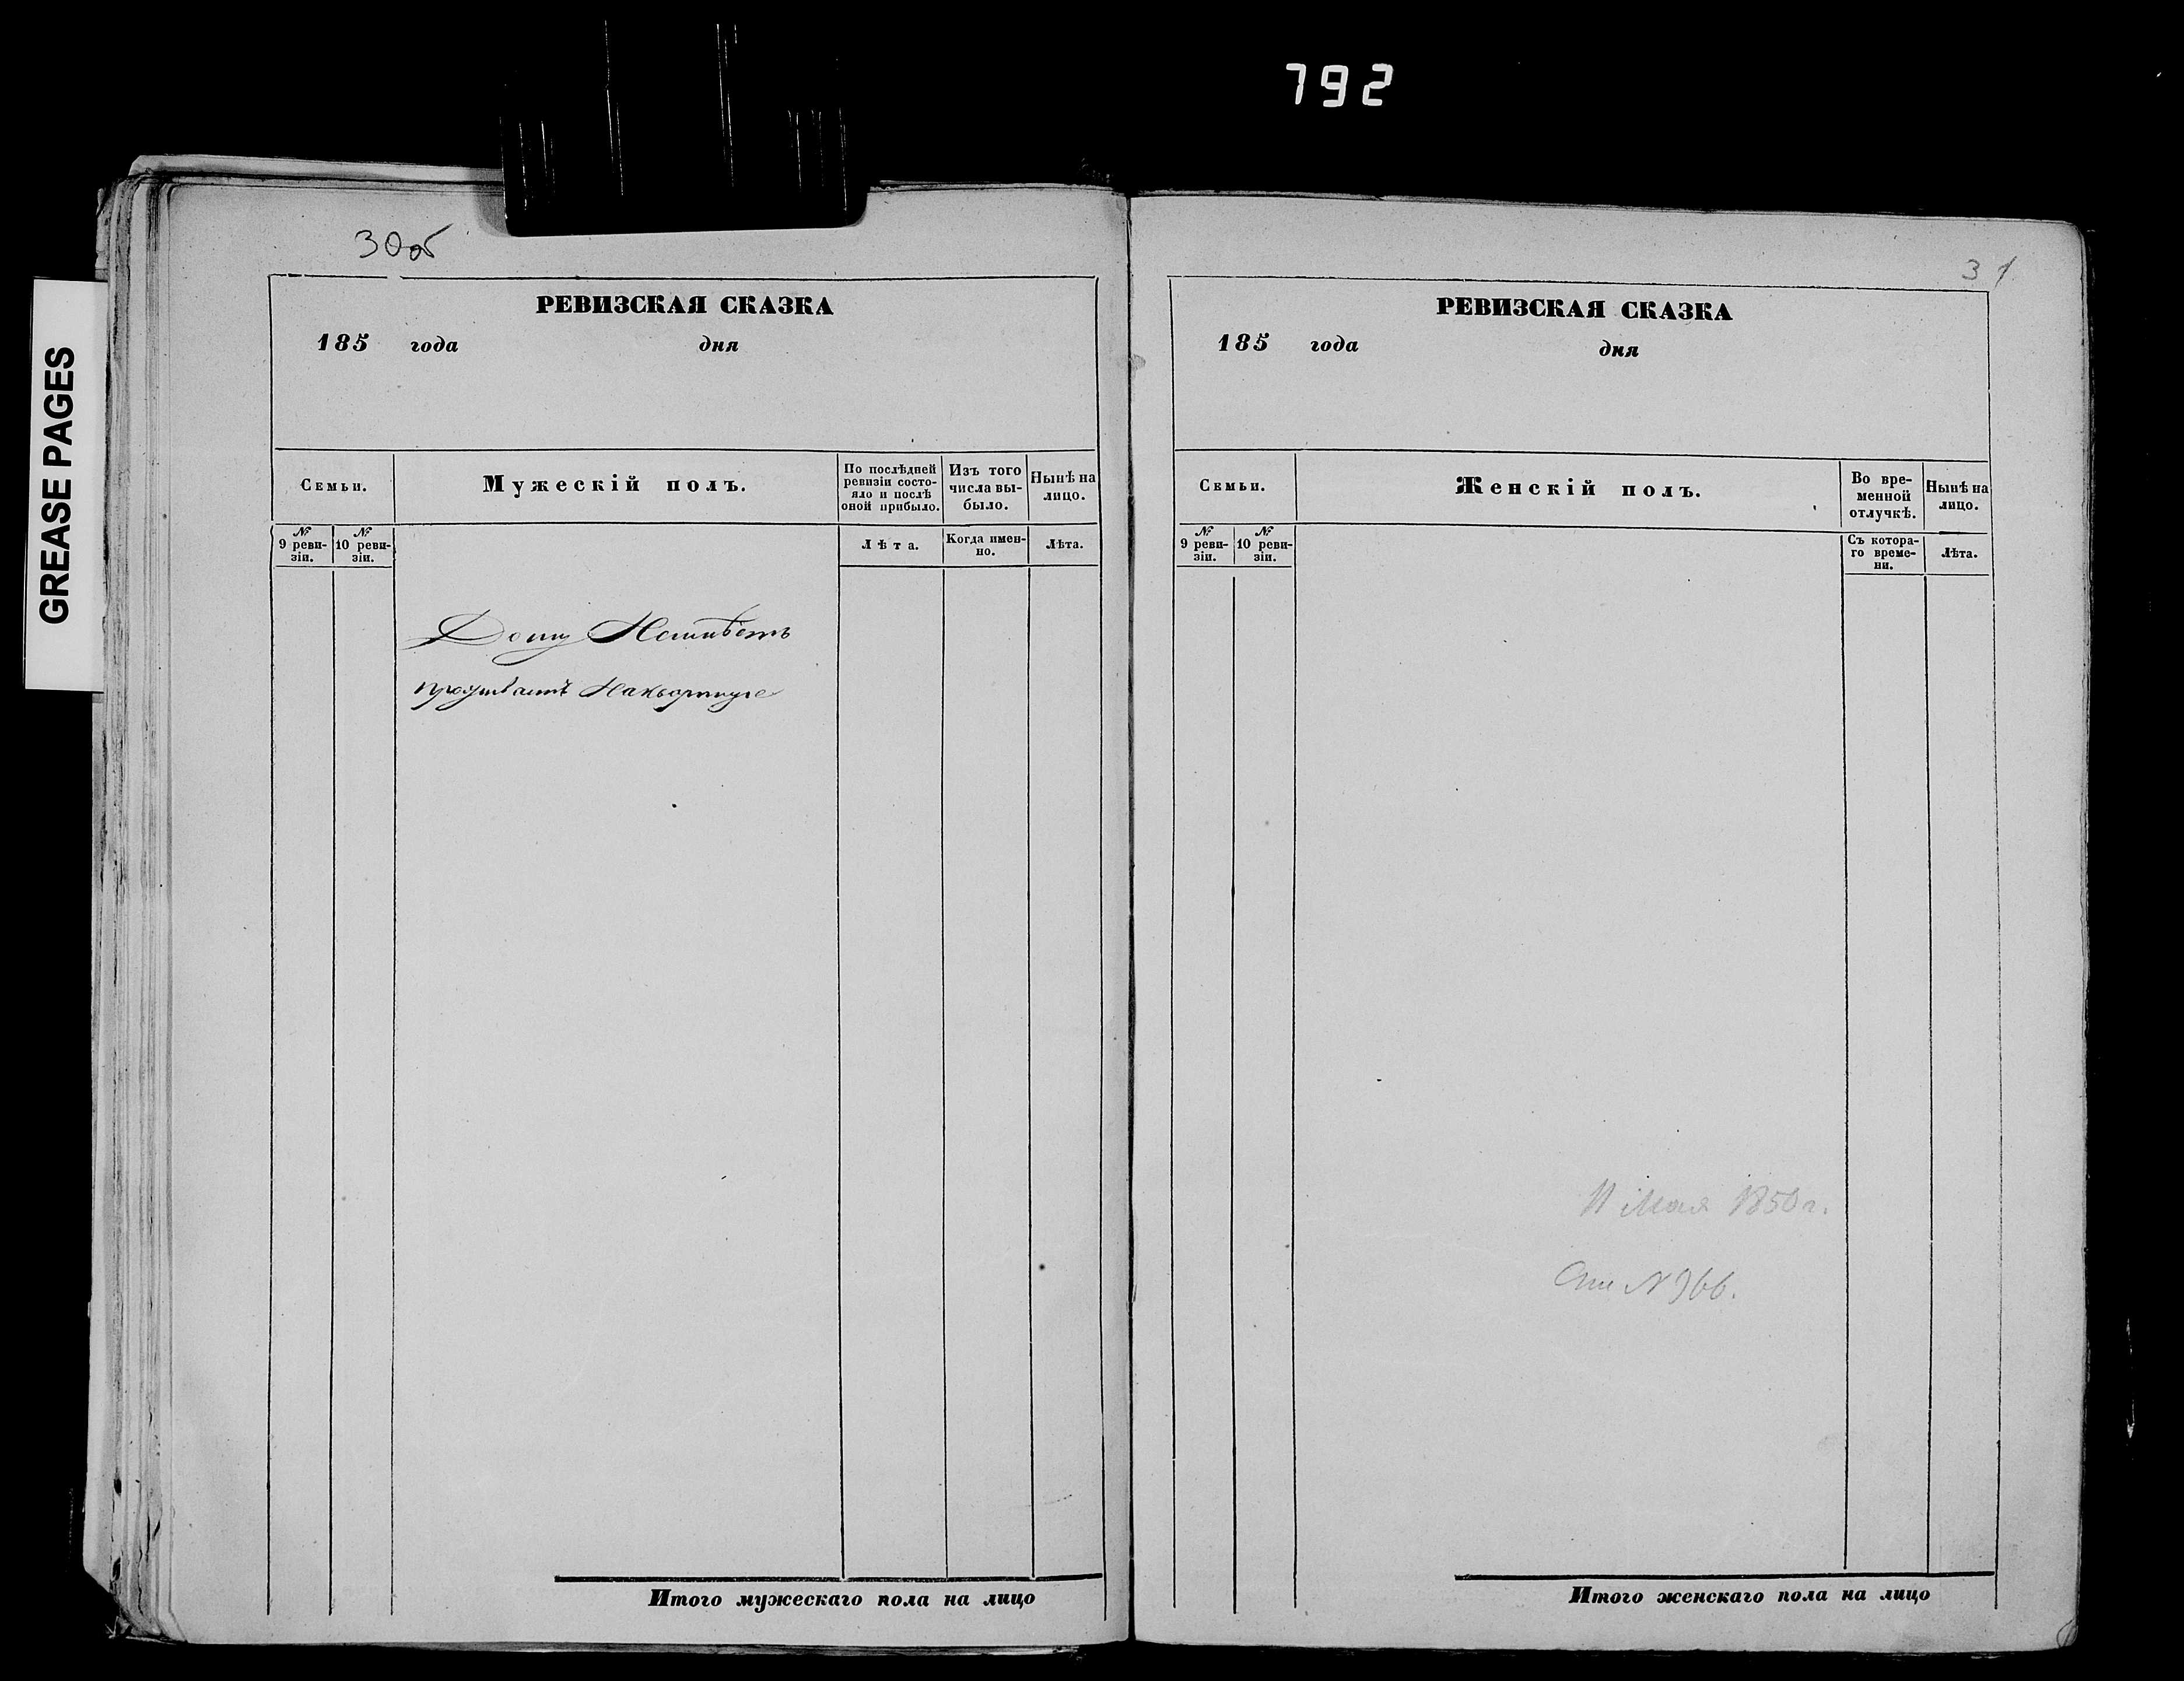 792
GREASE PAGES
30об
РЕВИЗСКАЯ СКАЗКА
185 года дня
Семьи.
Мужескій полъ.
По послѣдней
ревизіи состо-
яло и послѣ
оной прибыло.
Изъ того
числа вы-
было.
Нынѣ на
лицо.
№
9 реви-
зіи.
№
10 реви-
зіи.
Лѣта.
Когда имен-
но.
Лѣта.
Дому Неимѣетъ
проживаетъ Наквартире
Итого мужескаго пола на лицо
31
РЕВИЗСКАЯ СКАЗКА
185 года дня
Семьи.
Женскій полъ.
Во вре-
менной
отлучкѣ.
Нынѣ на
лицо.
№
9 реви-
зіи.
№
10 реви-
зіи.
Съ котора-
го време-
ни.
Лѣта.
11 Мая 1850 г.
N 966.
Итого женскаго пола на лицо